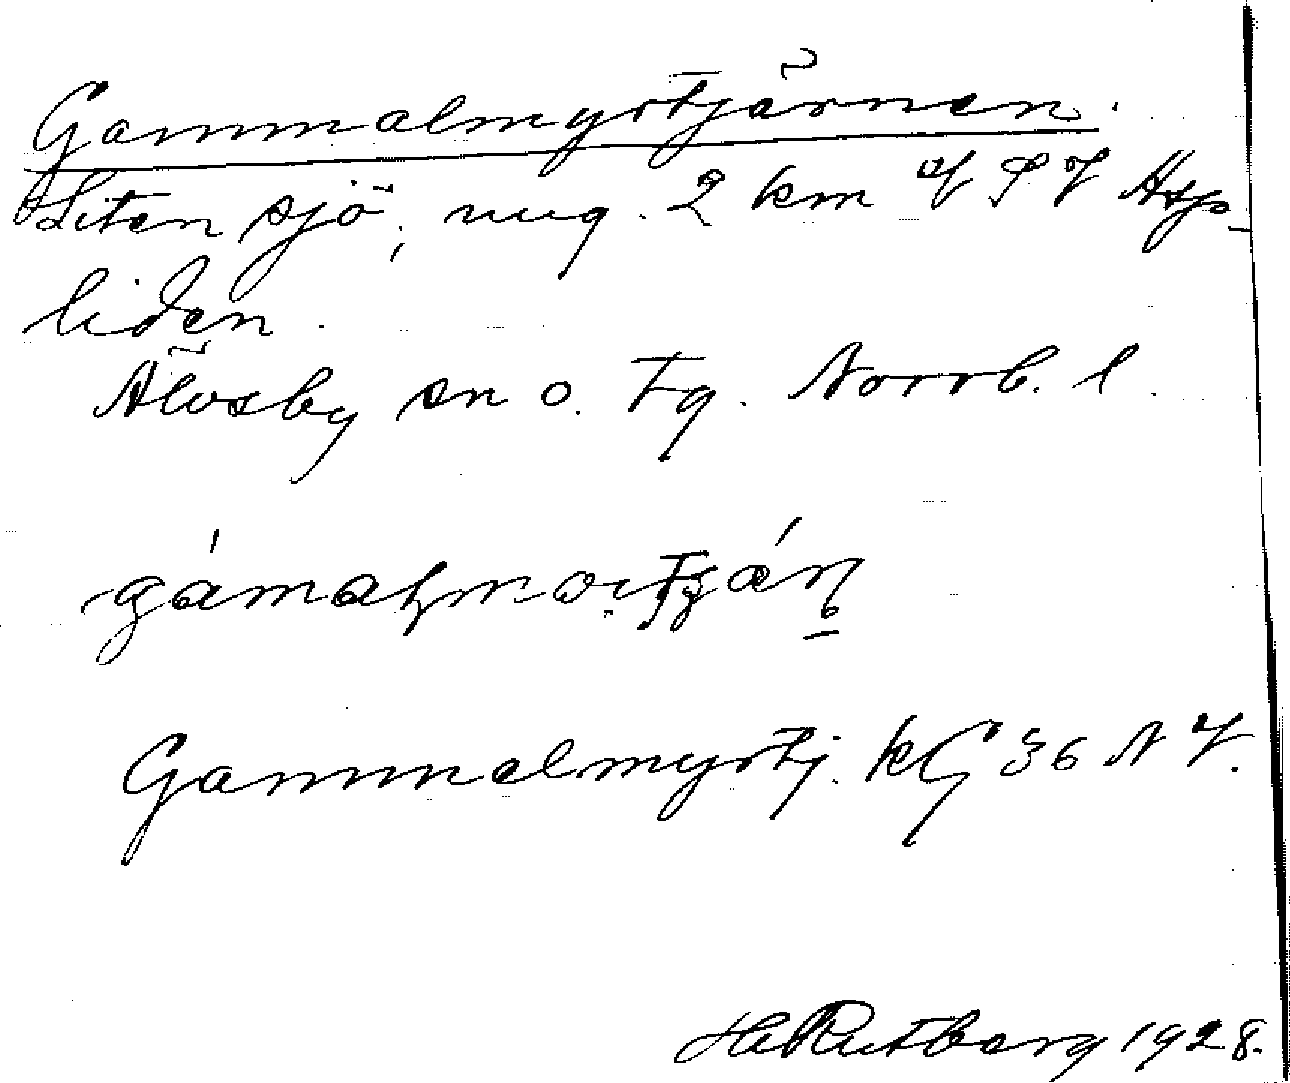 Gammalmyrtjärnen.
Liten sjö, ung. 2 km V S V Asp-
liden.
Älvsby sn o. tg. Norrb. l.
Gammalmyrtj. kG 36 N V.
H Rutberg 1928.